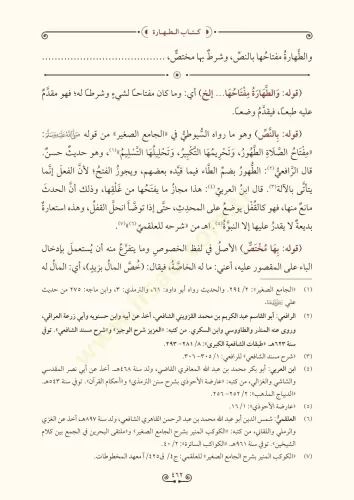 كتاب الطهارة
والطهارةُ مفتاحُها بالنصِّ، وشرطٌ بها مختصٌّ،
(قوله: وَالطَّهَارَةُ مِفْتَاحُهَا... إلخ) أي: وما كان مفتاحاً لشيءٍ وشرطاً له؛ فهو مقدَّمٌ
عليه طبعاً، فيقدَّمُ وضعاً.
(قوله: بِالنَّصِّ) وهو ما رواه السُّيوطيُّ في «الجامع الصغير» من قوله ﷺ:
«مِفْتَاحُ الصَّلَاةِ الطُّهُورُ، وَتَحْرِيمُهَا التَّكْبِيرُ، وَتَحْلِيلُهَا التَّسْلِيمُ»(١)، وهو حديثٌ حسنٌ.
قال الرَّافعيُّ(٢): الطُّهورُ بضمِّ الطَّاء فيما قيَّده بعضهم، ويجوز الفتحُ؛ لأنَّ الفعلَ إنَّما
يتأتَّى بالآلة(٣). قال ابنُ العربيِّ(٤): هذا مجازُ ما يفتحُها من غَلْقِها، وذلك أنَّ الحدثَ
مانعٌ منها، فهو كالقُفْلِ يوضعُ على المحدِثِ، حتَّى إذا توضَّأ انحلَّ القفلُ، وهذه استعارةٌ
بديعةٌ لا يقدرُ عليها إلا النبوَّةُ(٥). اهـ من «شرحه للعلقمي»(٦)(٧).
(قوله: بِهَا مُخْتَصٌّ) الأصلُ في لفظ الخصوصِ وما يتفرَّعُ منه أن يُستعملَ بإدخال
الباء على المقصور عليه، أعني: ما له الخاصَّةُ، فيقال: (خُصَّ المالُ بزيدٍ)، أي: المالُ له
(١) «الجامع الصغير»: ٢/ ٢٩٤. والحديث رواه أبو داود: ٦١، والترمذي: ٣، وابن ماجه: ٢٧٥ من حديث
علي
(٢) الرافعي: أبو القاسم عبد الكريم بن محمد القزويني الشافعي، أخذ عن أبيه وابن حسنويه وأبي زرعة العراقي،
وروى عنه المنذر والطاووسي وابن السكري. من كتبه: «العزيز شرح الوجيز» و«شرح مسند الشافعي». توفي
سنة ٦٢٣هـ. «طبقات الشافعية الكبرى»: ٨/ ٢٨١-٢٩٣.
(٣) «شرح مسند الشافعي» للرافعي: ١/ ٣٠٥-٣٠٦.
(٤) ابن العربي: أبو بكر محمد بن عبد الله المعافري القاضي، ولد سنة ٤٦٨هـ. أخذ عن أبي نصر المقدسي
والشاشي والغزالي، من كتبه: «عارضة الأحوذي بشرح سنن الترمذي» و«أحكام القرآن». توفي سنة ٥٤٣هـ.
«الديباج المذهب»: ٢/ ٢٥٢-٢٥٦.
(٥) «عارضة الأحوذي»: ١/ ١٦.
(٦) العلقمي: شمس الدين أبو عبد الله محمد بن عبد الرحمن القاهري الشافعي، ولد سنة ٨٩٧هـ، أخذ عن الغزي
والرملي واللقاني، من كتبه: «الكوكب المنير بشرح الجامع الصغير» و«ملتقى البحرين في الجمع بين كلام
الشيخين». توفي سنة ٩٦١هـ. «الكواكب السائرة»: ٢/ ٤٠.
(٧) «الكوكب المنير بشرح الجامع الصغير» للعلقمي: ج٤/ ق٤٢٥/ أ معهد المخطوطات.
٤٦٢